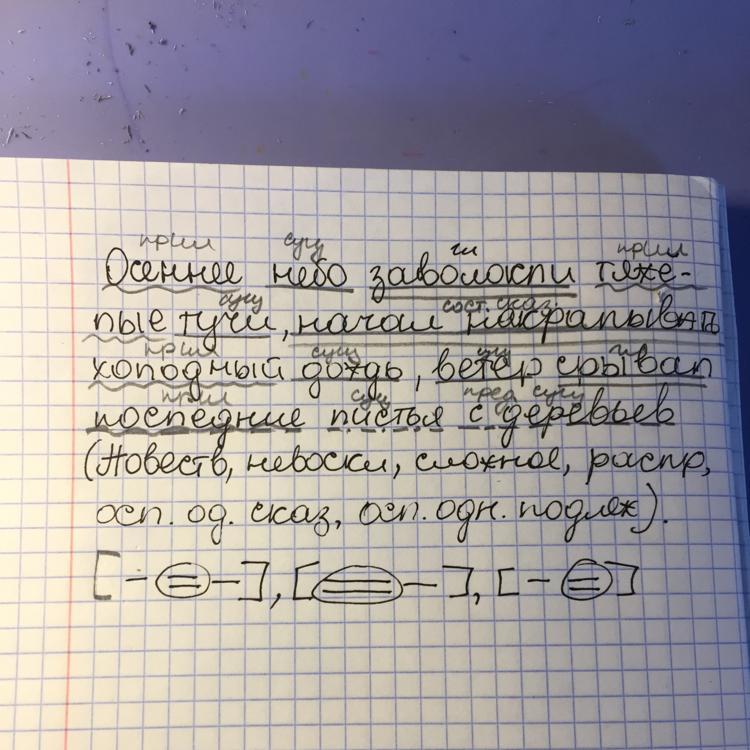 прил сущ гл прил
Осеннее небо заволокли тяже-
сущ сост. сказ.
лые тучи, начал накрапывать
прил сущ сущ гл
холодный дождь, ветер срывал
прил сущ пред сущ
последние листья с деревьев
(Повеств, невоскл, сложное, распр,
осл. од. сказ, осл. одн. подлеж).
[-=-], [=-], [-=]